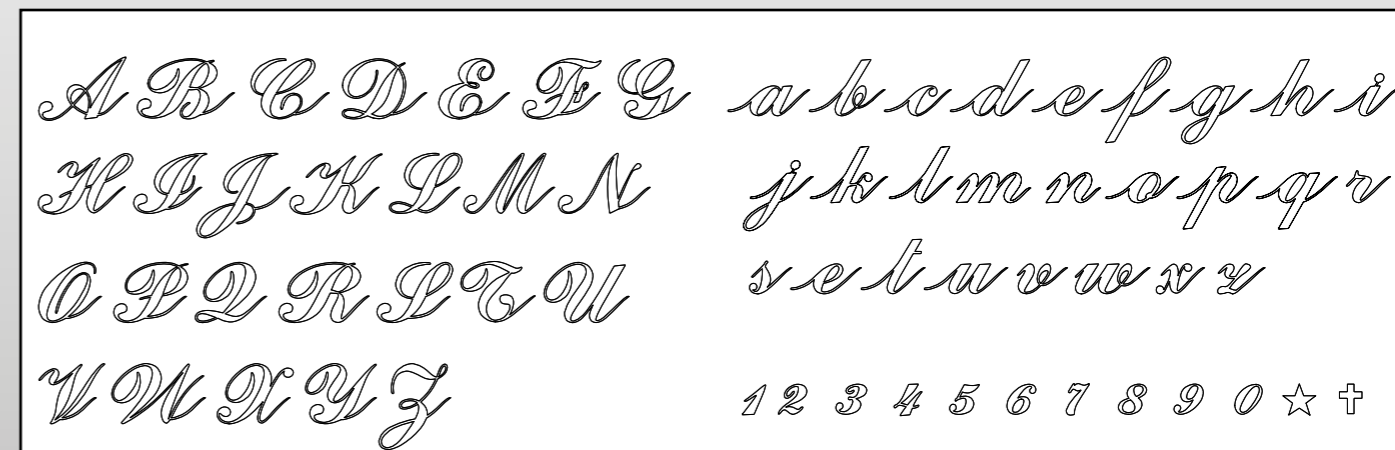 A B C D E F G
H I J K L M N
O P Q R S T U
V W X Y Z
a b c d e f g h i
j k l m n o p q r
s e t u v w x z
1 2 3 4 5 6 7 8 9 0 ☆ ✝